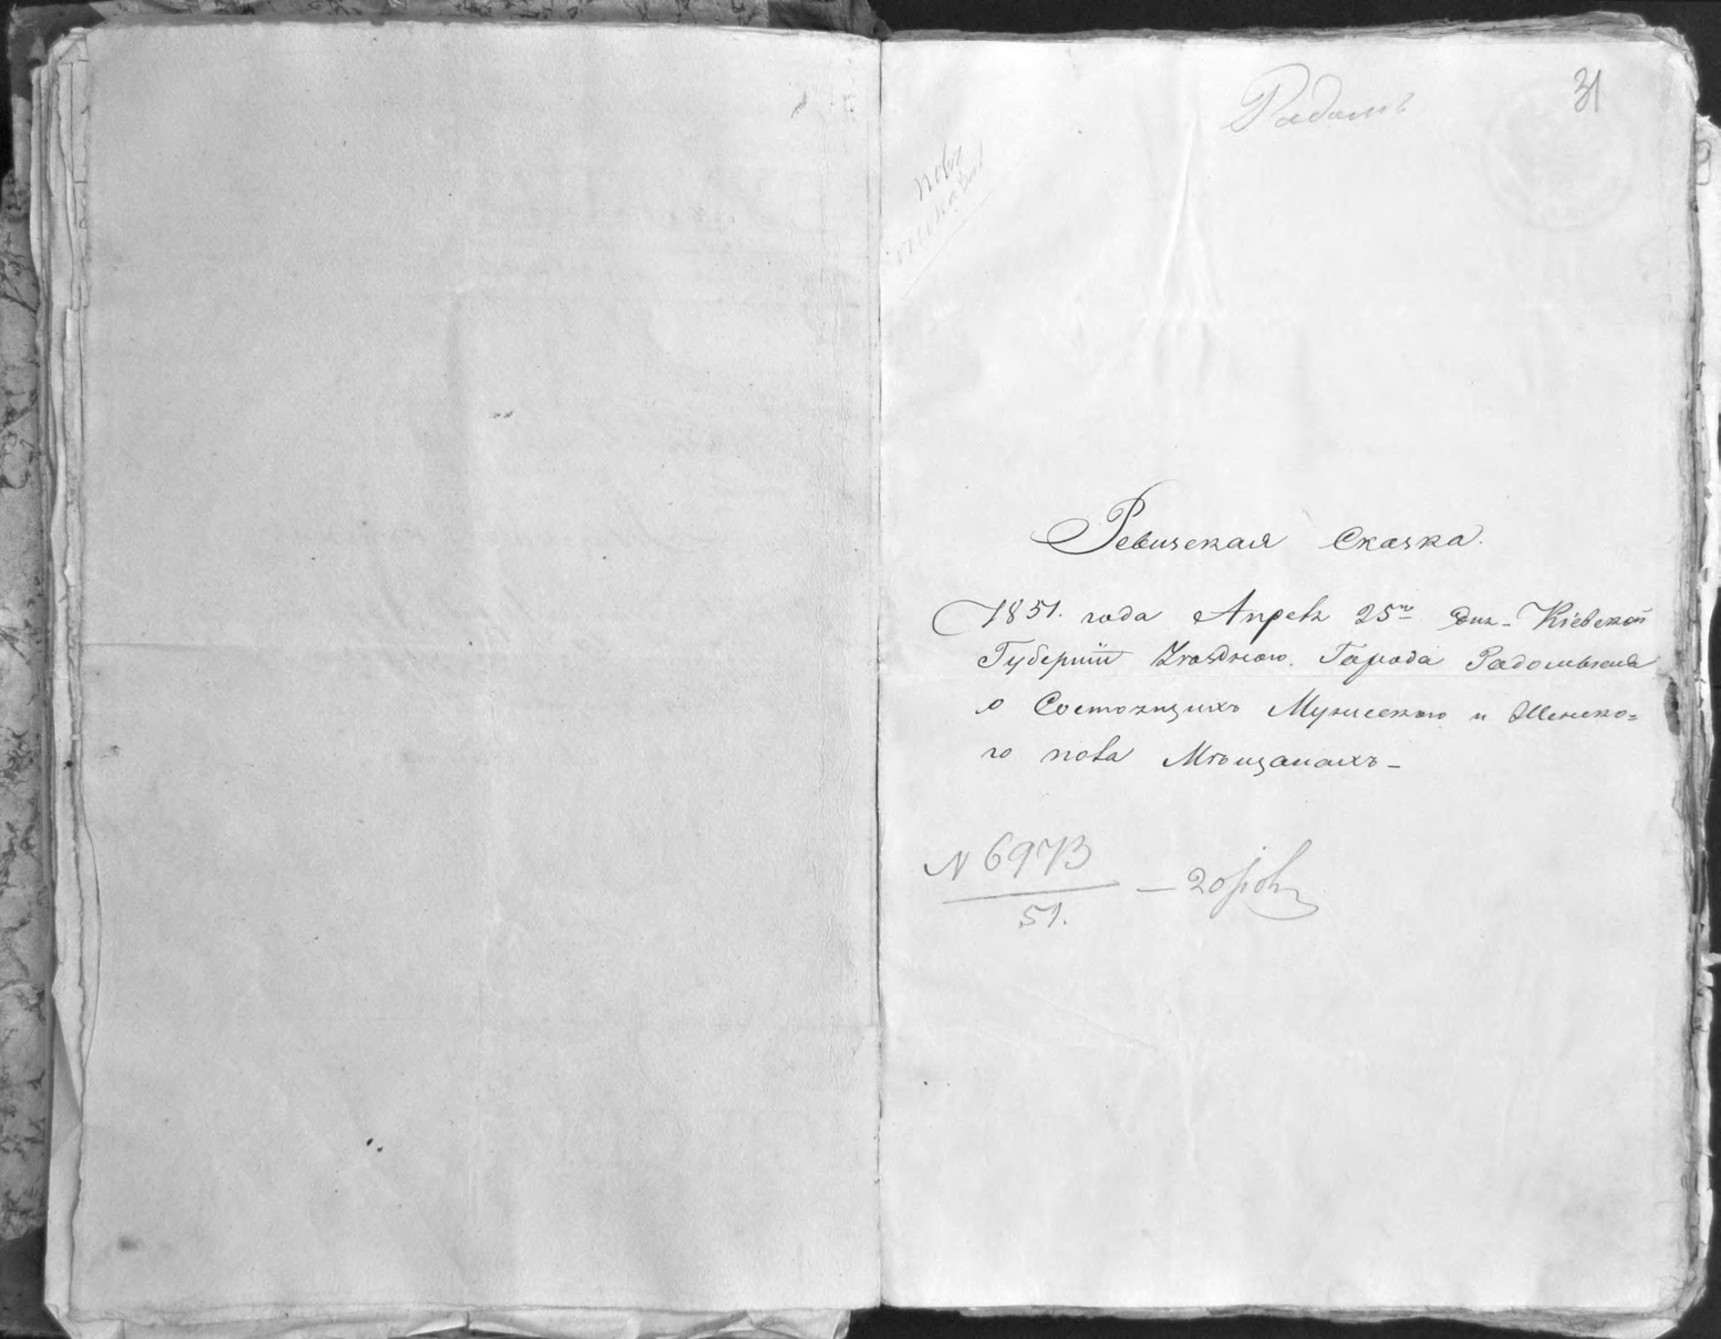 31
Радом
Ревизская Сказка.
1851. года Апреля 25го дня - Кіевской
Губерніи Уѣзднаго Города Радомысля
о Состоящихъ Мужескаго и Женско=
го пола Мѣщанахъ -
N 6973
51.